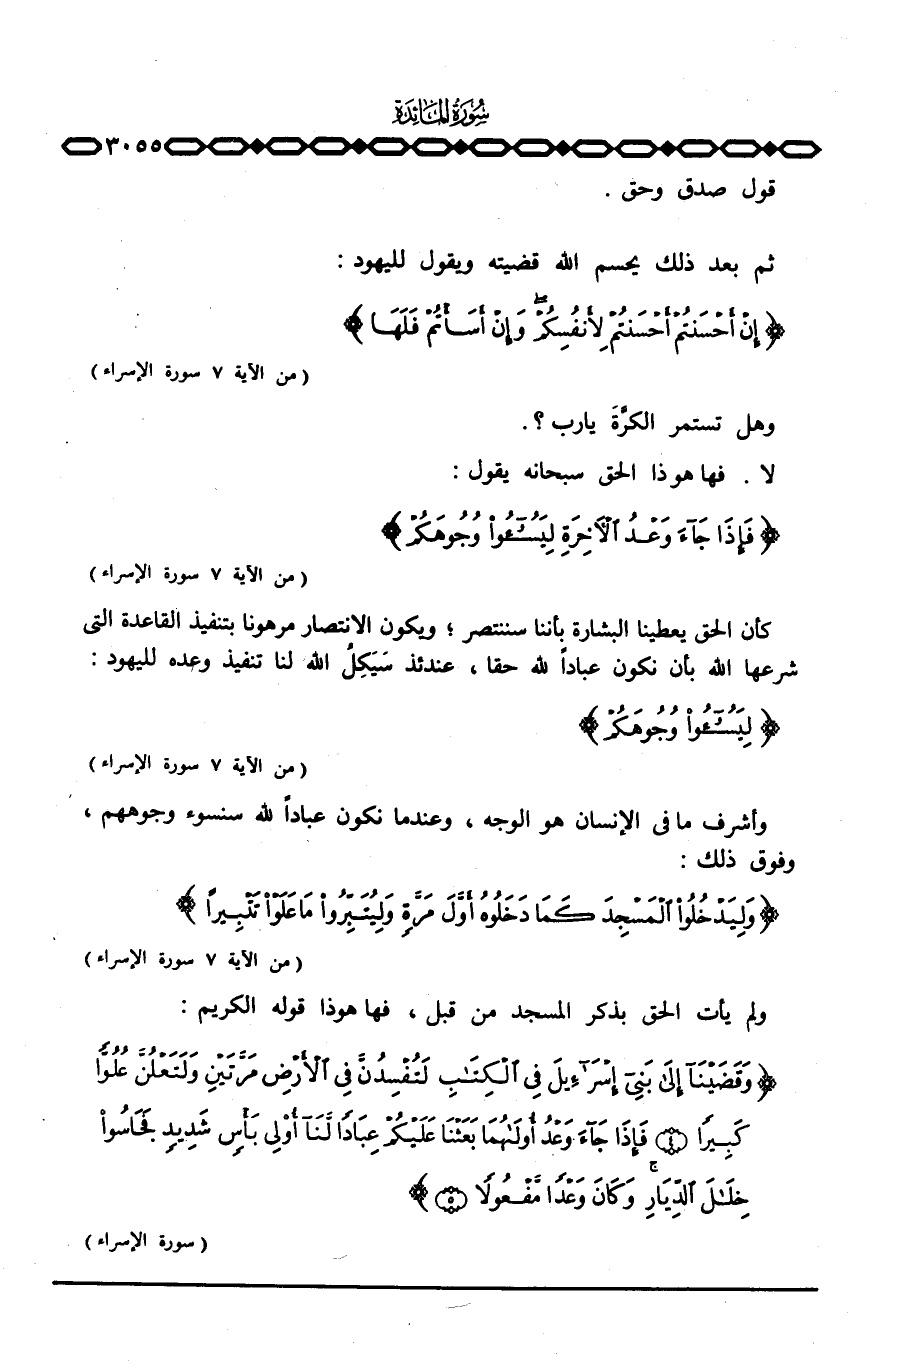 سُورَةُ المَائِدَة
٣٠٥٥
قول صدق وحق .
ثم بعد ذلك يحسم الله قضيته ويقول لليهود :
﴿ إِنْ أَحْسَنتُمْ أَحْسَنتُمْ لِأَنفُسِكُمْ ۖ وَإِنْ أَسَأْتُمْ فَلَهَا ﴾
( من الآية ٧ سورة الإسراء )
وهل تستمر الكرَّةَ يارب ؟ .
لا . فها هو ذا الحق سبحانه يقول :
﴿ فَإِذَا جَآءَ وَعْدُ ٱلْأَخِرَةِ لِيَسُـٓـُٔوا۟ وُجُوهَكُمْ ﴾
( من الآية ٧ سورة الإسراء )
كأن الحق يعطينا البشارة بأننا سننتصر ؛ ويكون الانتصار مرهونا بتنفيذ القاعدة التى
شرعها الله بأن نكون عباداً لله حقا ، عندئذ سَيَكِلُ الله لنا تنفيذ وعده لليهود :
﴿ لِيَسُـٓـُٔوا۟ وُجُوهَكُمْ ﴾
( من الآية ٧ سورة الإسراء )
وأشرف ما فى الإنسان هو الوجه ، وعندما نكون عباداً لله سنسوء وجوههم ،
وفوق ذلك :
﴿ وَلِيَدْخُلُوا۟ ٱلْمَسْجِدَ كَمَا دَخَلُوهُ أَوَّلَ مَرَّةٍ وَلِيُتَبِّرُوا۟ مَا عَلَوْا۟ تَتْبِيرًا ﴾
( من الآية ٧ سورة الإسراء )
ولم يأت الحق بذكر المسجد من قبل ، فها هوذا قوله الكريم :
﴿ وَقَضَيْنَآ إِلَىٰ بَنِىٓ إِسْرَٰٓءِيلَ فِى ٱلْكِتَٰبِ لَتُفْسِدُنَّ فِى ٱلْأَرْضِ مَرَّتَيْنِ وَلَتَعْلُنَّ عُلُوًّا
كَبِيرًا ٤ فَإِذَا جَآءَ وَعْدُ أُولَىٰهُمَا بَعَثْنَا عَلَيْكُمْ عِبَادًا لَّنَآ أُو۟لِى بَأْسٍ شَدِيدٍ فَجَاسُوا۟
خِلَٰلَ ٱلدِّيَارِ ۚ وَكَانَ وَعْدًا مَّفْعُولًا ٥ ﴾
( سورة الإسراء )